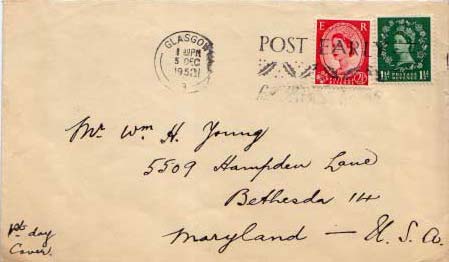 GLASGOW
5 DEC
1952
POST EARLY
E R
2½
1½ 1½
POSTAGE REVENUE
Mr Wm H. Young
5509 Hampden Lane
Bethesda 14
Maryland — U. S. A.
1st day
Cover.